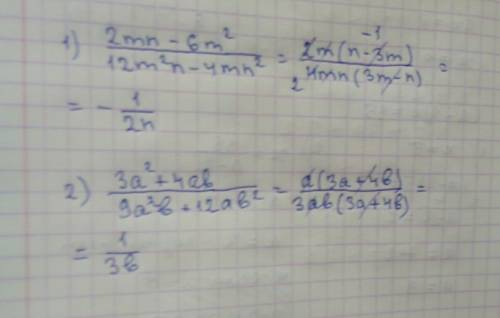 1) (2mn - 6m²)/(12m²n - 4mn²) = (2m(n - 3m))/(4mn(3m - n)) = -1 2
= - 1/2n
2) (3a² + 4ab)/(9a²b + 12ab²) = (a(3a + 4b))/(3ab(3a + 4b)) =
= 1/3b